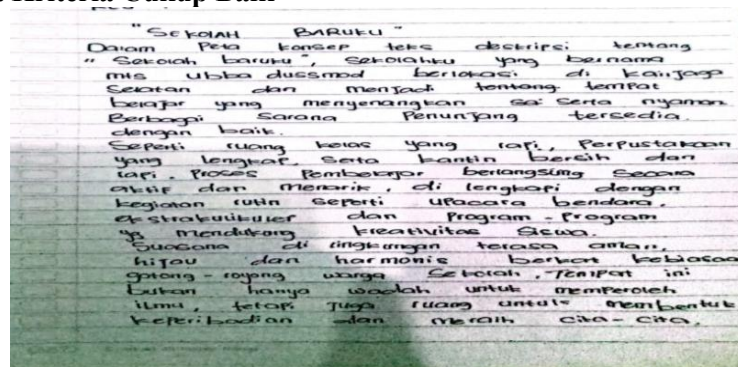 "SEKOLAH BARUKU"
Dalam Peta konsep teks deskripsi tentang
"Sekolah baruku", Sekolahku yang bernama
mis ubba dussmod berlokasi di kalijaga
Selatan dan menjadi tentang tempat
belajar yang menyenangkan sa: Serta nyaman.
Berbagai Sarana Penunjang tersedia.
dengan baik.
Seperti ruang kelas yang rapi, Perpustakaan
yang lengkap. Serta kantin bersih dan
rapi. Proses Pembelajar berlangsung Secara
aktif dan menarik, di lengkapi dengan
kegiatan rutin seperti upacara bendara.
ekstrakulikuler dan Program-Program
yg mendukong kreativitas Siswa.
Suasana di lingkungan terasa aman,
hijau dan harmonis berkat kebiasaan
gotong-royong warga Sekolah, Tempat ini
bukan hanya wadah untuk memperoleh
ilmu, tetapi juga ruang untuk membentuk
keperibadian dan meraih cita-cita.